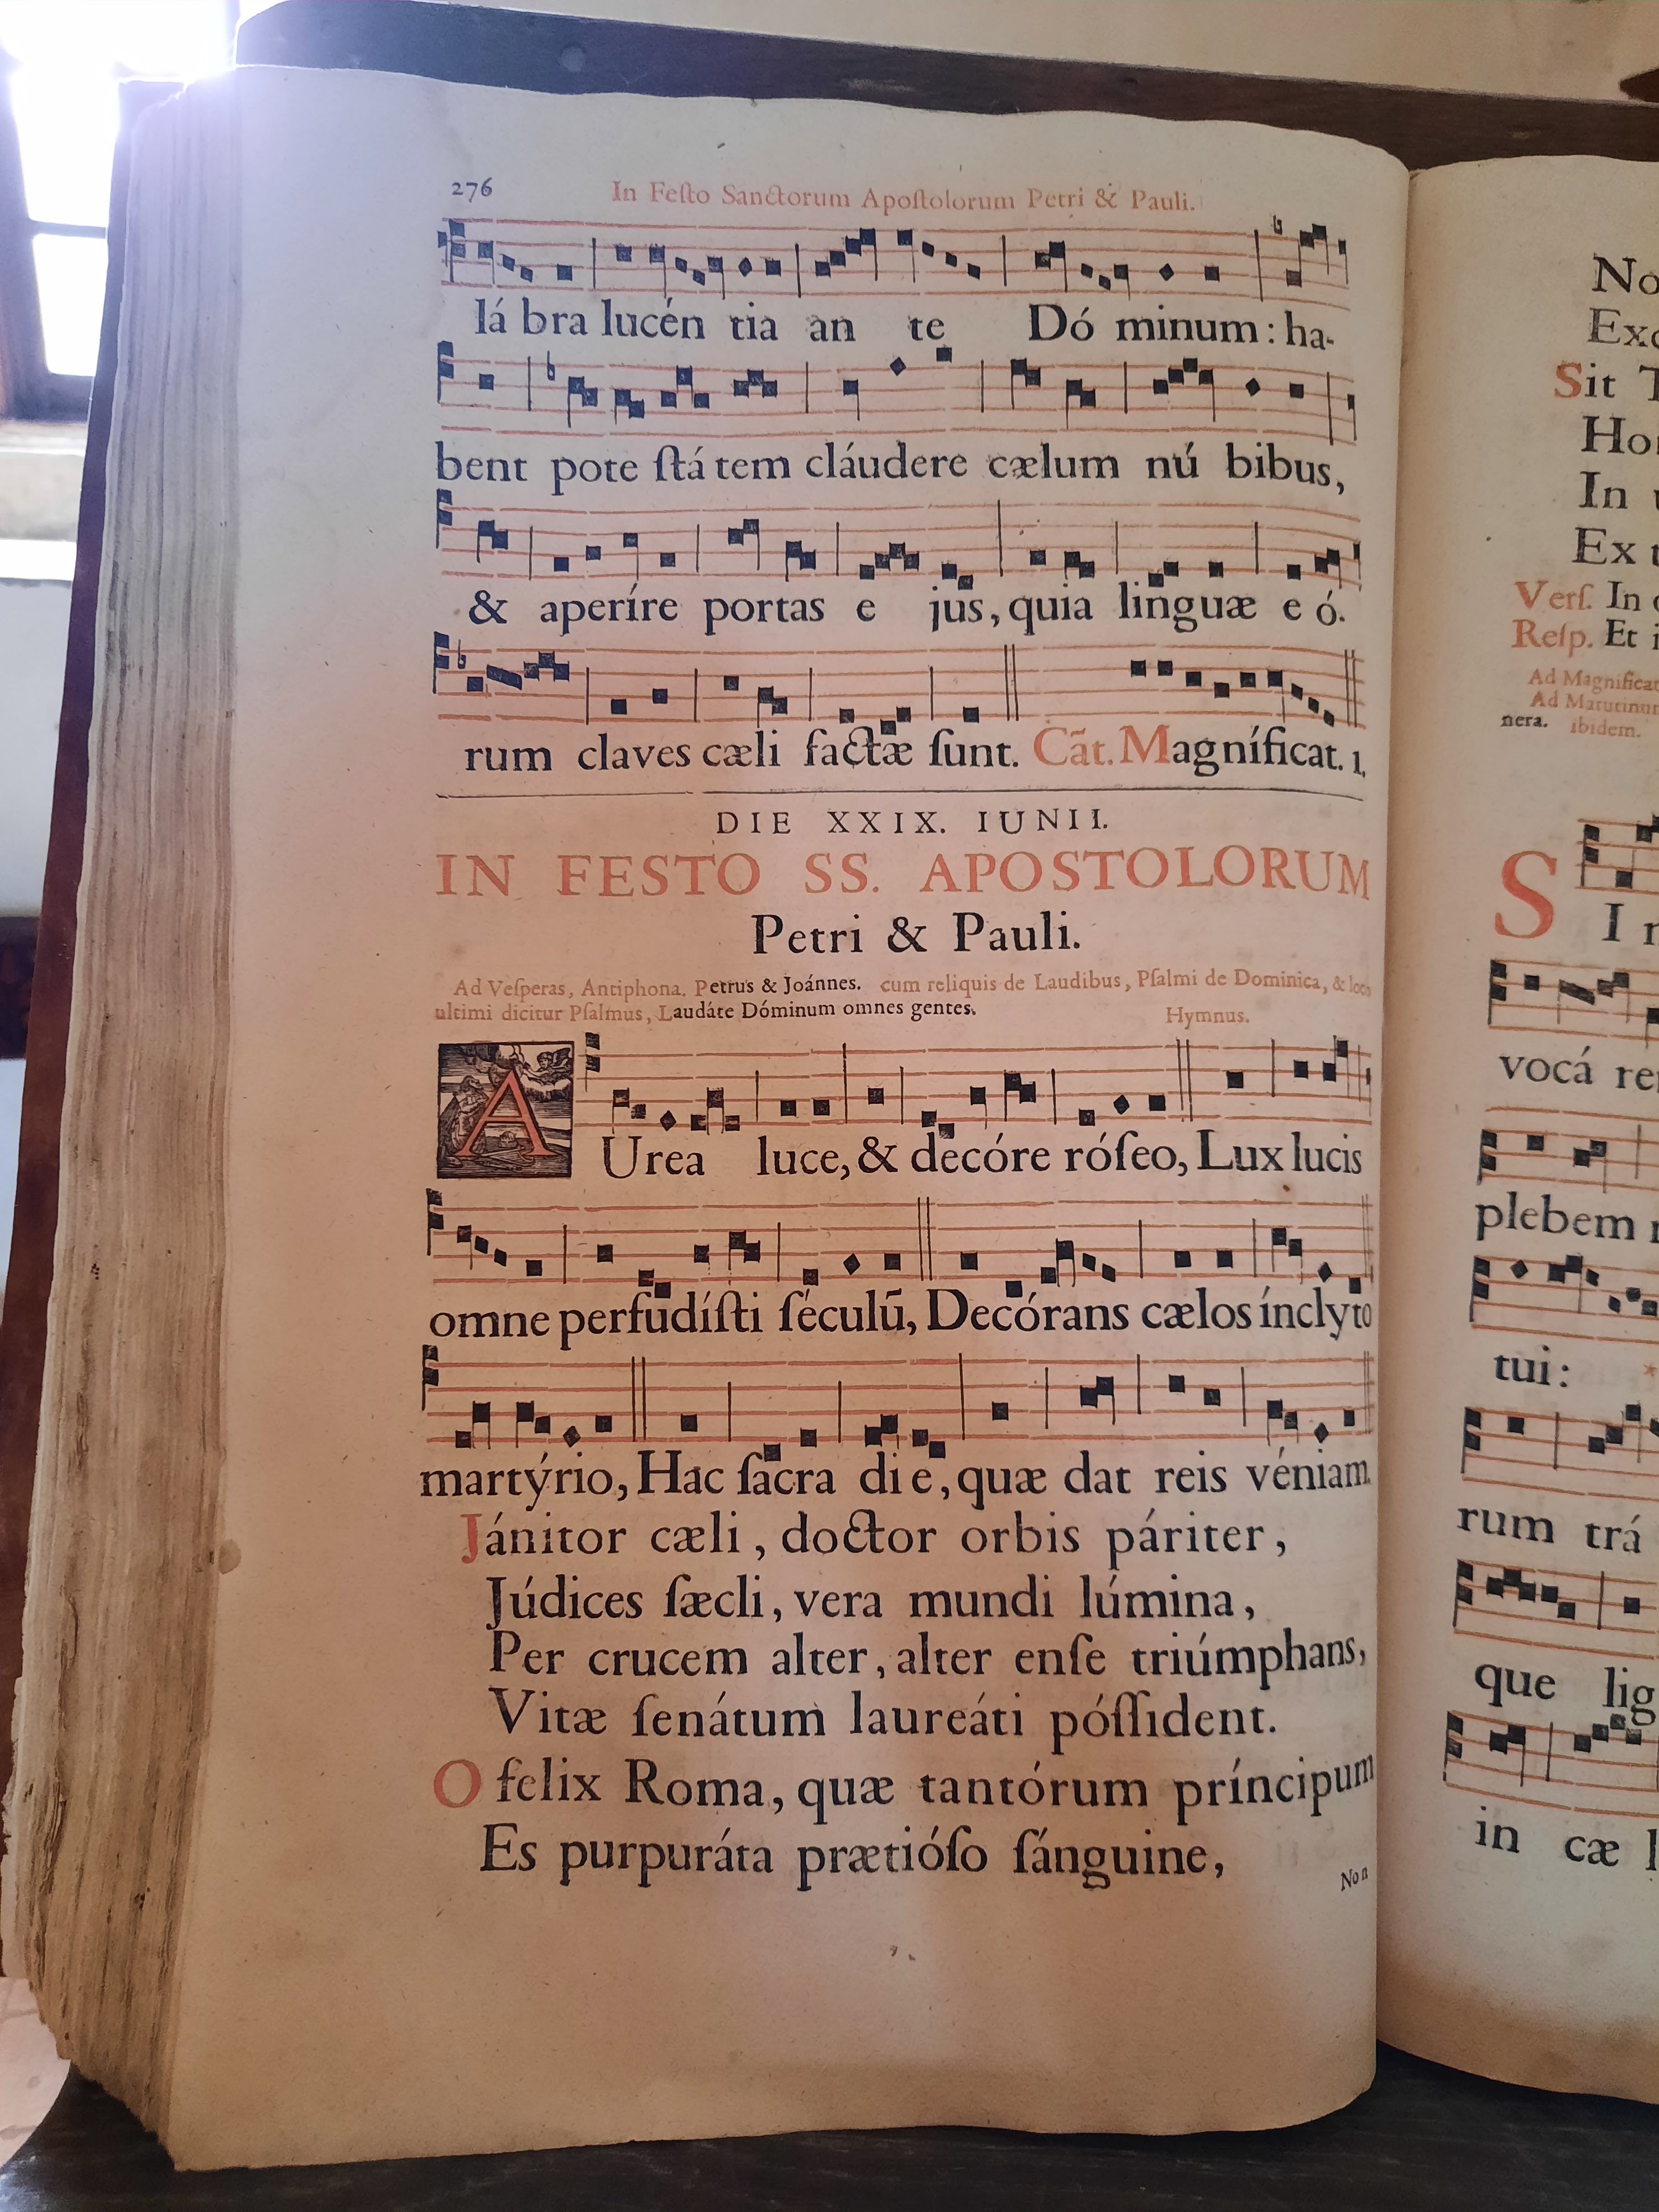 276 In Feſto Sanctorum Apoſtolorum Petri & Pauli.
lá bra lucén tia an te Dó minum: ha-
bent pote ſtá tem cláudere cælum nú bibus,
& aperíre portas e jus, quia linguæ e ó.
rum claves cæli factæ ſunt. Cãt. Magníficat. 1.
DIE XXIX. IUNII.
IN FESTO SS. APOSTOLORUM
Petri & Pauli.
Ad Veſperas, Antiphona. Petrus & Joánnes. cum reliquis de Laudibus, Pſalmi de Dominica, & loco
ultimi dicitur Pſalmus, Laudáte Dóminum omnes gentes. Hymnus.
AUrea luce, & decóre róſeo, Lux lucis
omne perfudíſti ſéculũ, Decórans cælos ínclyto
martýrio, Hac ſacra di e, quæ dat reis véniam.
Jánitor cæli, doctor orbis páriter,
Júdices ſæcli, vera mundi lúmina,
Per crucem alter, alter enſe triúmphans,
Vitæ ſenátum laureáti póſſident.
O felix Roma, quæ tantórum príncipum
Es purpuráta prætióſo ſánguine,
Non
Sit
In
Ex
Verſ. In
Reſp. Et
Ad Magnificat
Ad Matutinum
nera. ibidem.
SI
vocá
plebem
tui: *
rum trá
que lig
in cæ